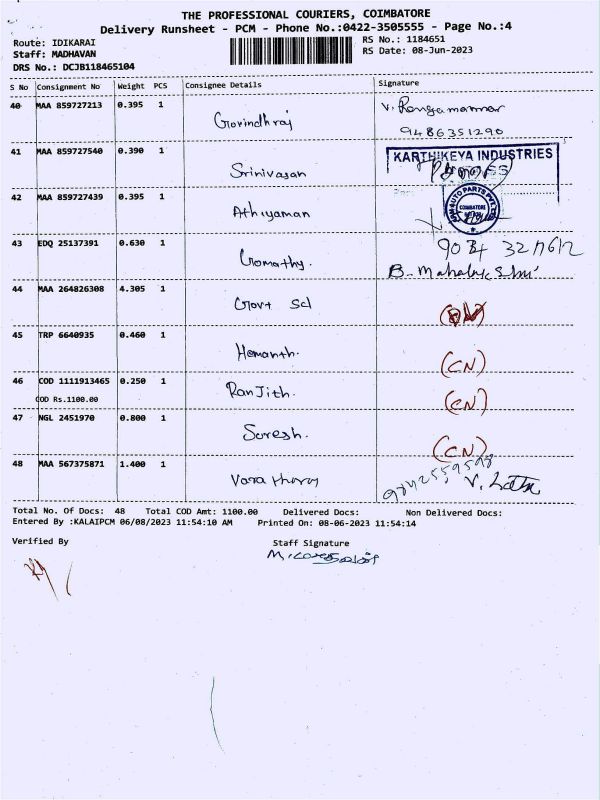 THE PROFESSIONAL COURIERS, COIMBATORE
Delivery Runsheet - PCM - Phone No.:0422-3505555 - Page No.:4
Route: IDIKARAI
RS No.: 1184651
Staff: MADHAVAN
RS Date: 08-Jun-2023
DRS No.: DCJB118465104
S No Consignment No Weight PCS Consignee Details Signature
40 MAA 859727213 0.395 1 Govindhraj V. Rangamannar
9486351290
41 MAA 859727540 0.390 1 Srinivasan KARTHIKEYA INDUSTRIES
42 MAA 859727439 0.395 1 Athiyaman COIMBATORE
43 EDQ 25137391 0.630 1 Gomathy.
B. Mahalak
44 MAA 264826308 4.305 1 Govt Scl
45 TRP 6640935 0.460 1 Hemanth. (CN)
46 COD 1111913465 0.250 1 Ranjith. (CN)
COD Rs.1100.00
47 NGL 2451970 0.800 1 Suresh. (CN)
48 MAA 567375871 1.400 1 9842559598 V. Latha
Total No. Of Docs: 48 Total COD Amt: 1100.00 Delivered Docs: Non Delivered Docs:
Entered By :KALAIPCM 06/08/2023 11:54:10 AM Printed On: 08-06-2023 11:54:14
Verified By Staff Signature
M. மாதவன்